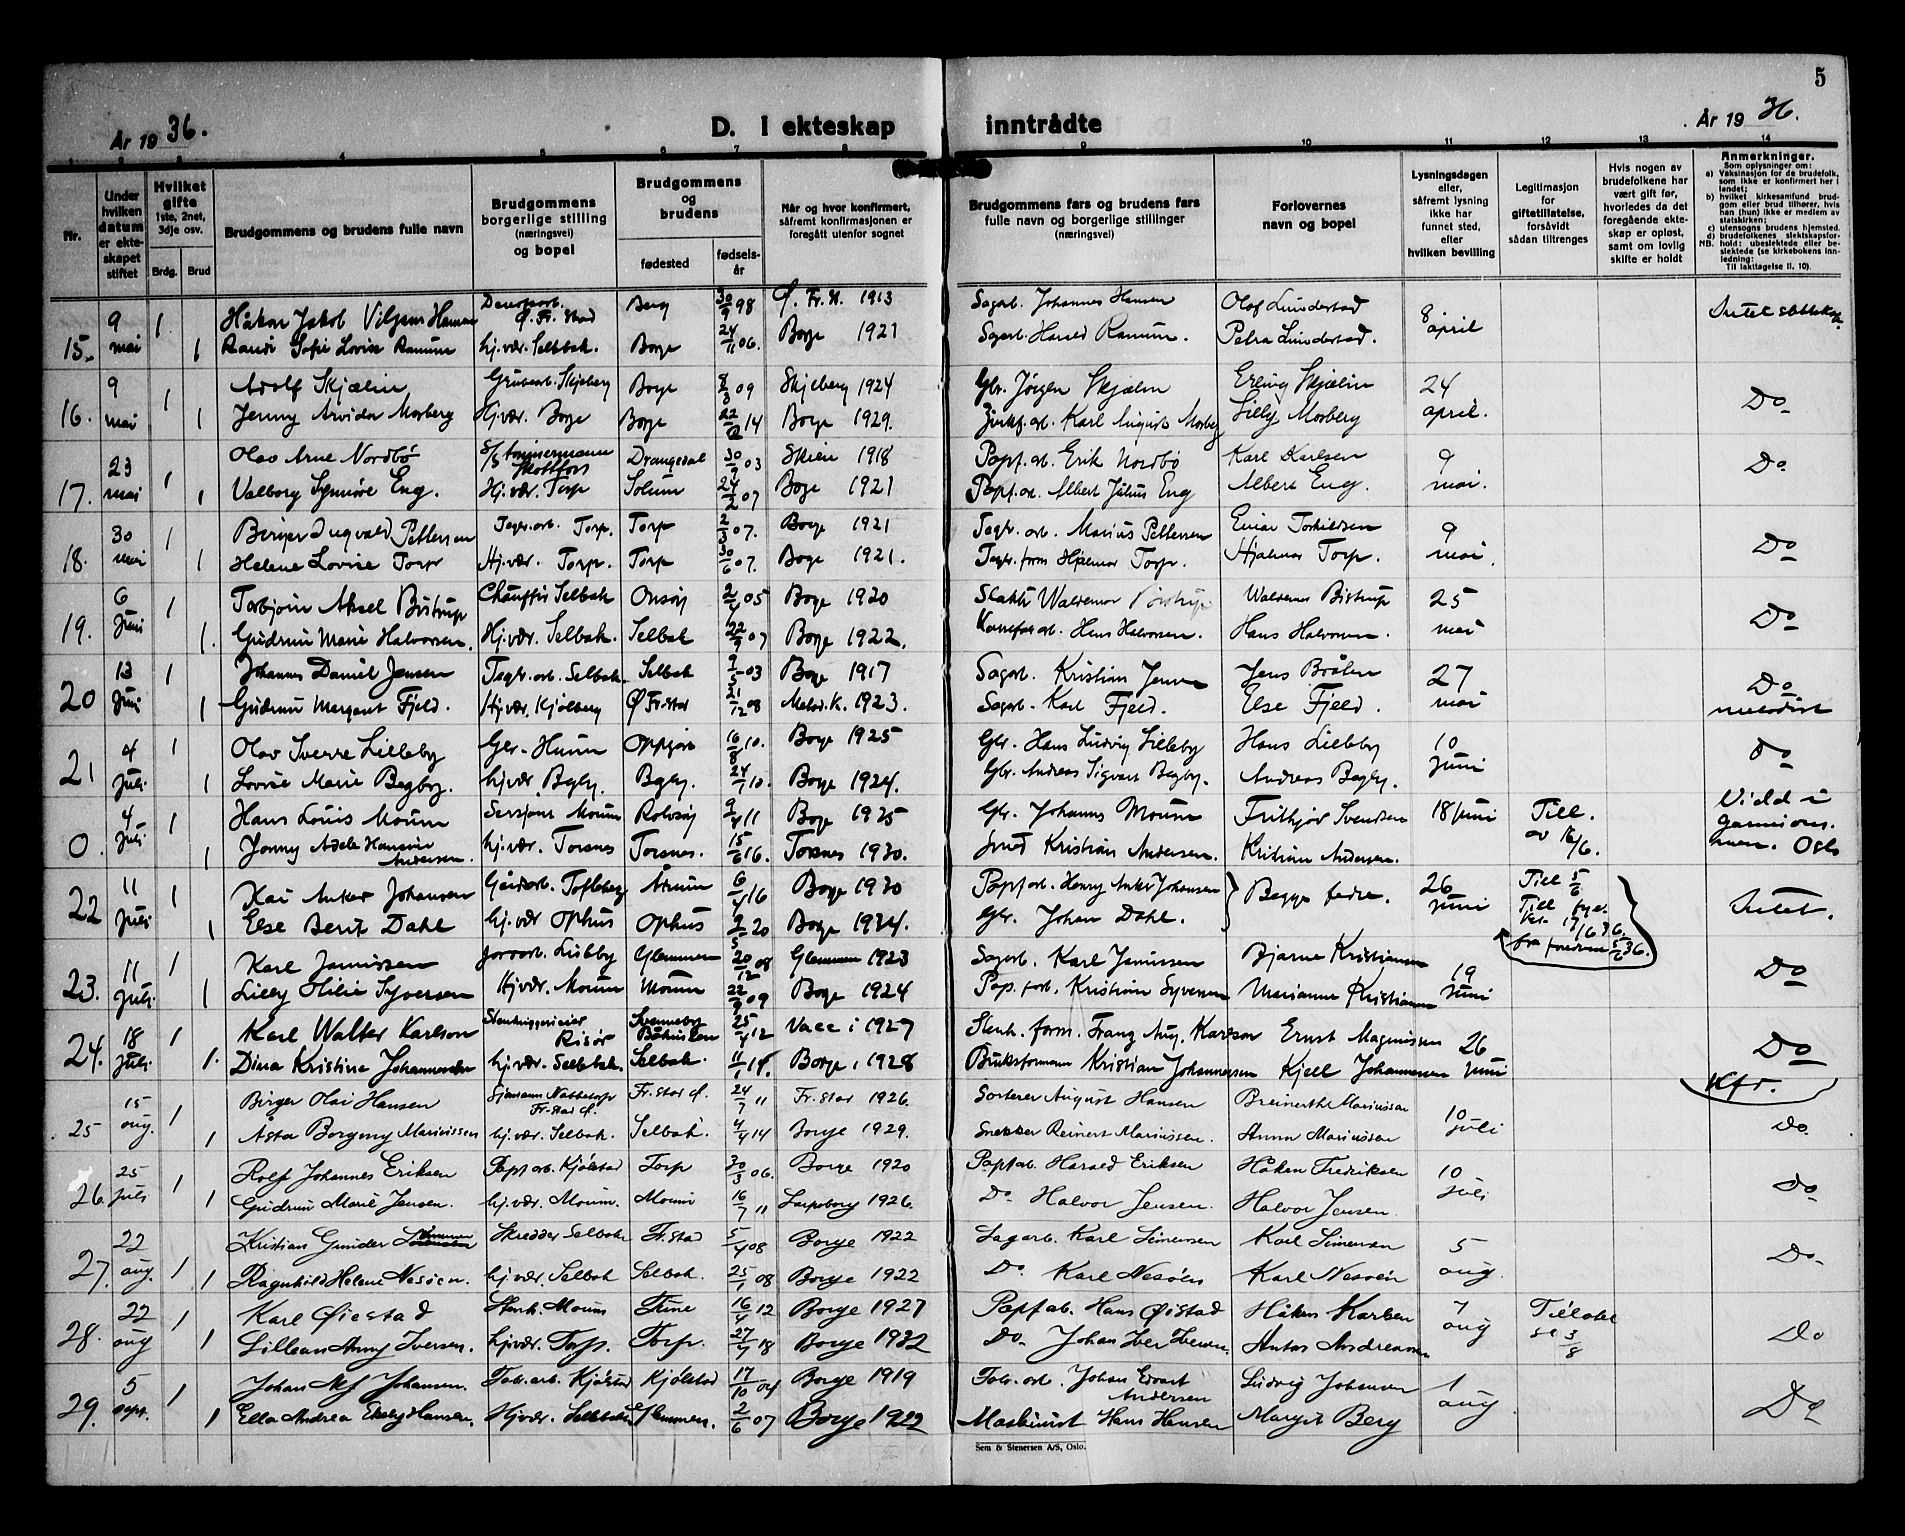 5
År 1936. D. I ekteskap inntrådte År 1936.
1 2 3 4 5 6 7 8 9 10 11 12 13 14
Nr.
Under hvilken datum er ekteskapet stiftet
Hvilket gifte 1ste, 2net, 3dje osv.
Brdg. Brud
Brudgommens og brudens fulle navn
Brudgommens borgerlige stilling (næringsvei) og bopel
Brudgommens og brudens
fødested fødselsår
Når og hvor konfirmert, såfremt konfirmasjonen er foregått utenfor sognet
Brudgommens fars og brudens fars fulle navn og borgerlige stillinger (næringsvei)
Forlovernes navn og bopel
Lysningsdagen eller, såfremt lysning ikke har funnet sted, efter hvilken bevilling
Legitimasjon for giftetillatelse, forsåvidt sådan tiltrenges
Hvis nogen av brudefolkene har vært gift før, hvorledes da det foregående ekteskap er opløst, samt om lovlig skifte er holdt
Anmerkninger.
Som oplysninger om:
a) Vaksinasjon for de brudefolk, som ikke er konfirmert her i landet;
b) hvilket kirkesamfund brudgom eller brud tilhører, hvis han (hun) ikke er medlem av statskirken;
c) utensogns brudens hjemsted.
d) brudefolkenes slektskapsforhold: ubeslektede eller beslektede (se kirkebokens innledning:
NB.
Til iakttagelse II. 10).
9 1 Håkon Jakob Ø. Fr.stad Berg 30/9 98 Ø. Fr. St. 1913 Sagarb. Johannes Hansen Olaf Lunderstad 8 Intet
15. mai 1 Randi Sofie Lovise Ramum hj.vær. Selbak. Borge 24/11 06. Borge 1921 Sagarb. Harald Ramum. Petra Lunderstad. april
9 1 Adolf Skjælin Skjeberg Borge 8/3 09 Skjeberg 1924 Gbr. Jørgen Skjælin Erling Skjælin 24 Do
16. mai 1 Jenny Arvida Morberg Hj.vær. Borge Borge 14 Borge 1929. Karl August Morberg Lilly Morberg april.
23 1 Olav Arne Nordbø Skotfoss Drangedal 30/9 03 Skien 1918 Papf.arb. Erik Nordbø Karl Karlsen 9 Do
17. mai 1 Valborg Synnøve Eng. Hj.vær. Torp Solum 24/2 07 Borge 1921 Papf.arb. Albert Julius Eng Albert Eng. mai.
30 1 Birger Ingvald Pettersen Torp. Torp 2/3 07. Borge 1921 Marius Pettersen Einar Torkildsen 9 Do
18. mai 1 Helene Lovise Torp Hj.vær. Torp. Torp 30/6 07. Borge 1921. Hjalmar Torp. Hjalmar Torp. mai.
6 1 Torbjørn Aksel Bistrup Selbak Onsøy 2/4 05 Borge 1920 Waldemar Bistrup Waldemar Bistrup 25 Do
19. Juni 1. Gudrun Marie Halvorsen. Hj.vær. Selbak. Selbak 22/9 07 Borge 1922. Hans Halvorsen. Hans Halvorsen. mai
13 1 Johannes Daniel Jensen Selbak. Selbak 03 Borge 1917 Sagarb. Kristian Jensen Jens Bråten 27 Do
20 Juni 1 Gudrun Margaret Fjeld. Hj.vær. Kjølberg Ø Fr.stad 21/12 08 Metod.K. 1923. Sagarb. Karl Fjeld. Else Fjeld. mai metodist
4 1 Olav Sverre Lilleby Gbr. Hunn 10. Borge 1925 Gbr. Hans Ludvig Lilleby Hans Lilleby 10 Do
21 juli 1 Lovise Marie Begby. hj.vær Begby. Begby. 24/7 10. Borge 1924. Gbr. Andreas Sigvart Begby. Andreas Begby. Juni
4 1 Hans Louis Moum Sersjant Moum Rolvsøy 9/4 11 Borge 1925 Gbr. Johannes Moum Frithjov Svendsen 18 juni Till. Vidd i
0. juli 1 Jonny Adele Hansine Andersen. hj.vær. Torsnes Torsnes. 15/6 16. Torsnes 1930. Kristian Andersen. Kristian Andersen. av 16/6. Oslo
11 1 Kai Anker Johansen 6/4 16 Borge 1930 Papf.arb. Henry Anker Johansen Begge fedre. 26 Till 5/6 Intet.
22 juli 1 Else Berit Dahl hj.vær Ophus Ophus 20 Borge 1934. Gbr. Johan Dahl. juni Till
11 1 Karl Janussen Glemmen 20/12 08 Glemmen 1923 Sagarb. Karl Janussen Bjarne Kristiansen 19 Do
23. juli 1 Lilly Otilie Syversen Hj.vær. Moum Moum 22/9 09 Borge 1924 Kristian Syversen Marianne Kristiansen juni
18 1 Karl Walter Karlson Risør Svenneby Bohuslen 25/4 12 Vacc i 1927 Stenh. form. Franz Aug. Karlson Ernst Magnussen 26 Do
24. juli 1. Dina Kristine Johannessen hj.vær. Selbak. Selbak. 11/1 14. Borge, 1928 Bruksformann Kristian Johannessen Kjell Johannessen juni Kfr.
15 1 Birger Olai Hansen Fr.stad Ø. Fr.stad Ø. 24/7 11 Fr.stad 1926. Sorterer August Hansen Mariussen 10
25 aug. 1 Åsta Borgeny Mariussen hj.vær. Selbak. Selbak. 4/4 14 Borge 1929. Snekker Reinert Mariussen. Anna Mariussen juli Do.
25 1 Rolf Johannes Eriksen Papf.arb. Kjølstad Torp 30/3 06. Borge 1920 Papf.ab. Harald Eriksen Håken Fredriksen 10 Do
26. juli 1 Gudrun Marie Jensen. hj.vær. Moum. Moum 16/7 11 Sarpsborg 1926. Do. Halvor Jensen. Halvor Jensen. juli
22 1 Kristian Gunder Skredder Selbak Fr.stad 5/4 08 Borge 1922 Sagarb. Karl Simensen Karl Simensen 5 Do.
27. aug. 1 Ragnhild Helene Nesøen. hj.vær. Selbak Selbak. 25/1 08 Borge 1922 Do. Karl Nesøen Karl Nesøen aug.
22 1 Karl Øiestad Stenh. Moum Thune 16/4 12 Borge 1927 Papf.ab. Hans Øistad Håken Karlsen 7 Do
28. aug 1 Lillean Anny Iversen. hj.vær. Torp. Torp. 27/7 18 Borge 1932 Do. Johan Iver Iversen. Anton Andreassen aug 3/8
5 1 Johan Alf Johansen. Fabr.arb. Kjølstad Kjølstad 17/10 04 Borge 1919 Fabr.arb. Johan Edvart Andersen Ludvig Johansen 1 Do
29. sept. 1 Ella Andrea Hansen. Hj.vær. Selbak Glemmen. 2/6 07 Borge 1922 Maskinist Hans Hansen Margit Berg aug
Sem & Stenersen A/S, Oslo.